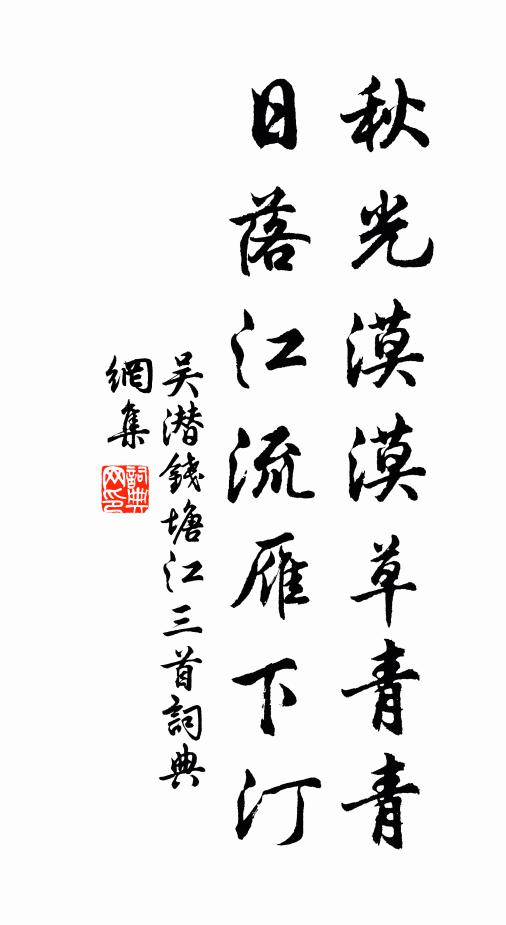 秋光漠漠草青青
日落江流雁下汀
吴潜錢塘江三首詞典
網集
詞典